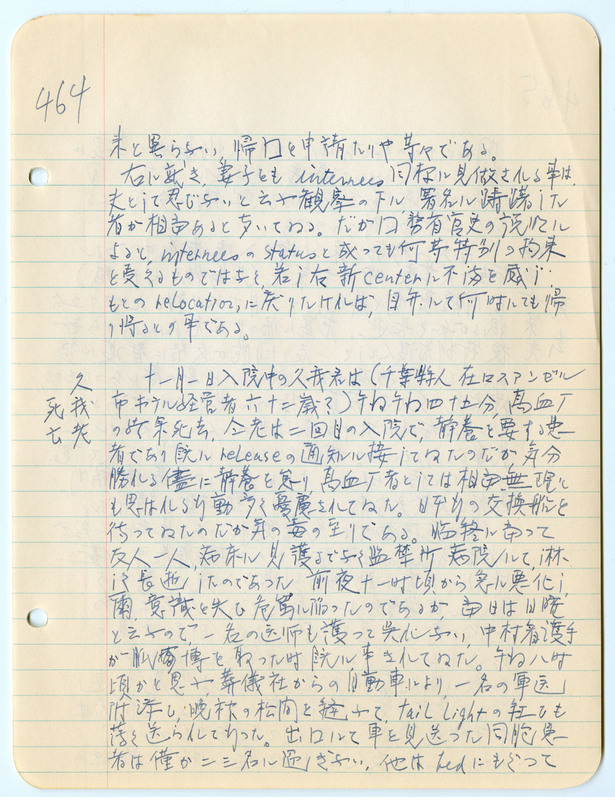 464
来と異らない、帰口を申請したり や等々である。
右に就き、妻子とも internees 同様に見做される事は、
夫として忍びないと云ふ観察の下に、署名に躊躇した
者が相当あると多いてゐる。だが口務省官吏の説明に
よると、internees の status と成っても何等特別の拘束
を受くるものではなく、若し右新 center に不満を感じ
もとの Relocation に戻りたければ、自年にて何時にても帰
り得るとの事である。
久我老
死亡
十一月一日入院中の久我君は(千葉縣人 在ロスアンゼル
市ホテル経営者 六十二歳?)午后 四十五分、高血圧
の為 死去、今度は二回目の入院で、静養を要する患
者であり既に release の通知に接してゐたのだが気分
勝れる儘に静養を怠り、高血圧者としては相当無理と
も思はれる行動多く憂慮されてゐた。日本行の交換船を
待ってゐたのだが気の毒の至りである。臨終に当って
友人一人、病床に見護るでなく監禁所病院にて、淋
しく長逝したのであった 前夜十一時頃から急に悪化し
爾 意識を失ひ危篤に陥ったのであるが 当日は日曜
と云ふので、一名の医師も護って呉れない、中村看護手
が脈搏を取った時 既に 事きれてゐた。午后八時
頃かと思ふ 葬儀社からの自動車により、一名の軍医
附添ひ、晩秋の松間を縫ふて、tail light の紅ひも
薄く送られて行った。出口にて車を見送った同胞患
者は僅か二三名に過ぎない、他は bed にもぐって